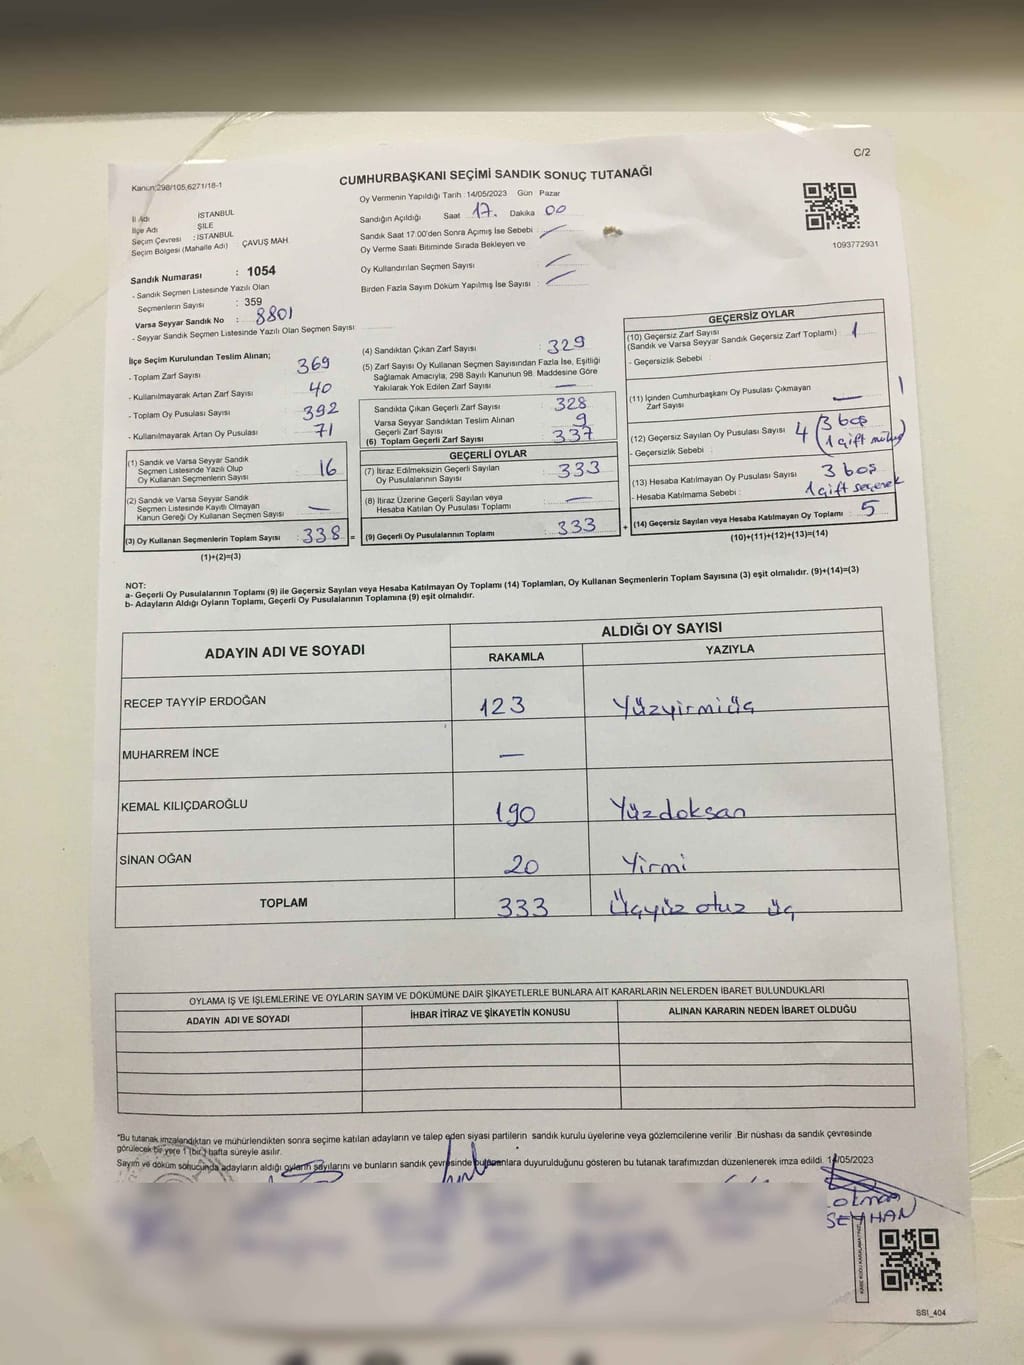 C/2
Kanun:298/105,6271/18-1
CUMHURBAŞKANI SEÇİMİ SANDIK SONUÇ TUTANAĞI
1093772931
İl Adı : İSTANBUL
İlçe Adı : ŞİLE
Seçim Çevresi : İSTANBUL
Seçim Bölgesi (Mahalle Adı) ÇAVUŞ MAH
Sandık Numarası : 1054
- Sandık Seçmen Listesinde Yazılı Olan
Seçmenlerin Sayısı : 359
Varsa Seyyar Sandık No : 8801
- Seyyar Sandık Seçmen Listesinde Yazılı Olan Seçmen Sayısı
Oy Vermenin Yapıldığı Tarih :14/05/2023 Gün Pazar
Sandığın Açıldığı Saat 17. Dakika 00
Sandık Saat 17:00'den Sonra Açımış İse Sebebi
Oy Verme Saati Bitiminde Sırada Bekleyen ve
Oy Kullandırılan Seçmen Sayısı
Birden Fazla Sayım Döküm Yapılmış İse Sayısı :
İlçe Seçim Kurulundan Teslim Alınan;
- Toplam Zarf Sayısı 369
- Kullanılmayarak Artan Zarf Sayısı 40
- Toplam Oy Pusulası Sayısı 392
- Kullanılmayarak Artan Oy Pusulası 71
(1) Sandık ve Varsa Seyyar Sandık
Seçmen Listesinde Yazılı Olup
Oy Kullanan Seçmenlerin Sayısı 16
(2) Sandık ve Varsa Seyyar Sandık
Seçmen Listesinde Kayıtlı Olmayan
Kanun Gereği Oy Kullanan Seçmen Sayısı —
(3) Oy Kullanan Seçmenlerin Toplam Sayısı : 338 =
(1)+(2)=(3)
(4) Sandıktan Çıkan Zarf Sayısı : 329
(5) Zarf Sayısı Oy Kullanan Seçmen Sayısından Fazla İse, Eşitliği
Sağlamak Amacıyla; 298 Sayılı Kanunun 98. Maddesine Göre
Yakılarak Yok Edilen Zarf Sayısı —
Sandıkta Çıkan Geçerli Zarf Sayısı 328
Varsa Seyyar Sandıktan Teslim Alınan
Geçerli Zarf Sayısı 9
(6) Toplam Geçerli Zarf Sayısı 337
GEÇERLİ OYLAR
(7) İtiraz Edilmeksizin Geçerli Sayılan
Oy Pusulalarının Sayısı 333
(8) İtiraz Üzerine Geçerli Sayılan veya
Hesaba Katılan Oy Pusulası Toplamı —
(9) Geçerli Oy Pusulalarının Toplamı : 333 +
GEÇERSİZ OYLAR
(10) Geçersiz Zarf Sayısı
(Sandık ve Varsa Seyyar Sandık Geçersiz Zarf Toplamı) 1
- Geçersizlik Sebebi :
(11) İçinden Cumhurbaşkanı Oy Pusulası Çıkmayan
Zarf Sayısı — 1
(12) Geçersiz Sayılan Oy Pusulası Sayısı 4 (3 boş
- Geçersizlik Sebebi : 1 çift mühür)
(13) Hesaba Katılmayan Oy Pusulası Sayısı 3 boş
- Hesaba Katılmama Sebebi : 1 çift seçenek
(14) Geçersiz Sayılan veya Hesaba Katılmayan Oy Toplamı : 5
(10)+(11)+(12)+(13)=(14)
NOT:
a- Geçerli Oy Pusulalarının Toplamı (9) ile Geçersiz Sayılan veya Hesaba Katılmayan Oy Toplamı (14) Toplamları, Oy Kullanan Seçmenlerin Toplam Sayısına (3) eşit olmalıdır. (9)+(14)=(3)
b- Adayların Aldığı Oyların Toplamı, Geçerli Oy Pusulalarının Toplamına (9) eşit olmalıdır.
ADAYIN ADI VE SOYADI
ALDIĞI OY SAYISI
RAKAMLA YAZIYLA
RECEP TAYYİP ERDOĞAN 123 Yüzyirmiüç
MUHARREM İNCE —
KEMAL KILIÇDAROĞLU 190 Yüzdoksan
SİNAN OĞAN 20 Yirmi
TOPLAM 333 Üçyüz otuz üç
OYLAMA İŞ VE İŞLEMLERİNE VE OYLARIN SAYIM VE DÖKÜMÜNE DAİR ŞİKAYETLERLE BUNLARA AİT KARARLARIN NELERDEN İBARET BULUNDUKLARI
ADAYIN ADI VE SOYADI İHBAR İTİRAZ VE ŞİKAYETİN KONUSU ALINAN KARARIN NEDEN İBARET OLDUĞU
*Bu tutanak imzalandıktan ve mühürlendikten sonra seçime katılan adayların ve talep eden siyasi partilerin sandık kurulu üyelerine veya gözlemcilerine verilir .Bir nüshası da sandık çevresinde
görülecek bir yere 1 (bir) hafta süreyle asılır.
Sayım ve döküm sonucunda adayların aldığı oyların sayılarını ve bunların sandık çevresinde bulunanlara duyurulduğunu gösteren bu tutanak tarafımızdan düzenlenerek imza edildi. 14/05/2023
SEYHAN
SSİ_404